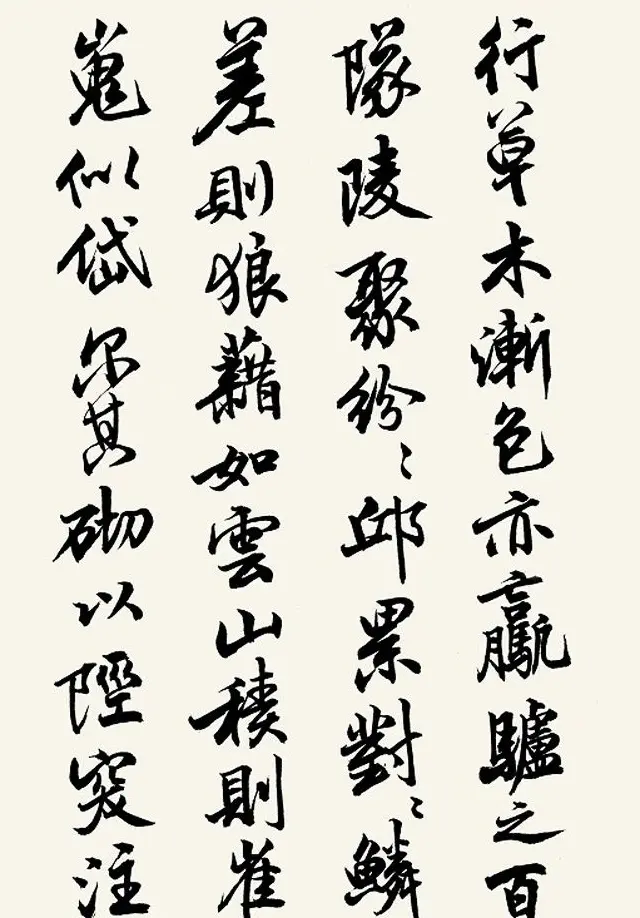 行草木漸色亦驘驢之百
隊陵聚紛〻邱累對〻鱗
差則狼藉如雲山積則崔
嵬似岱尔其砌以陘窔注